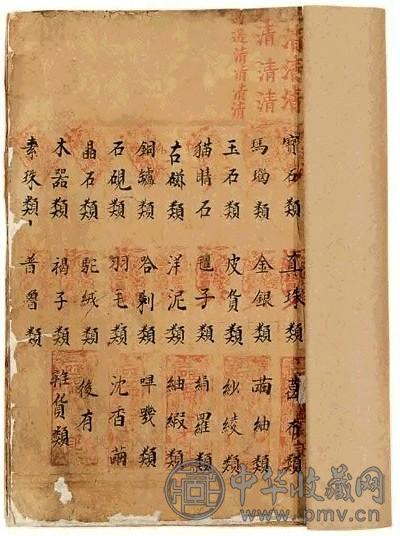 清清清
清清清
清清清清
寶石類 真珠類 葛布類
馬瑙類 金銀類 繭紬類
玉石類 皮貨類 紗綾類
貓睛石 氊子類 絹羅類
古磁類 洋泥類 紬緞類
銅鑪類 哈剌類 嗶嘰類
石硯類 羽毛類 沈香繭
晶石類 駝絨類 後有
木器類 褐子類 雜貨類
素珠類 普魯類
中华收藏网
www.pmv.cn